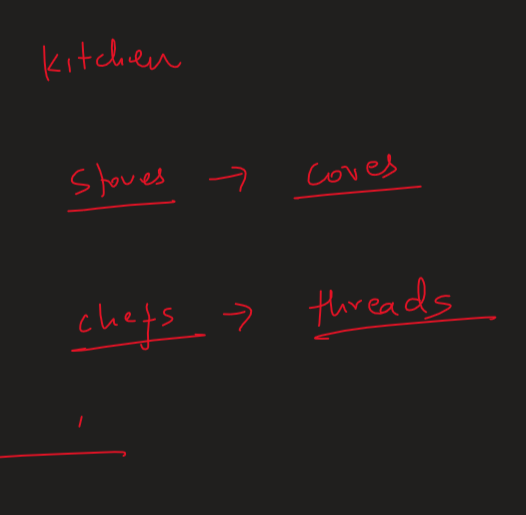 kitchen
stoves → cores
chefs → threads